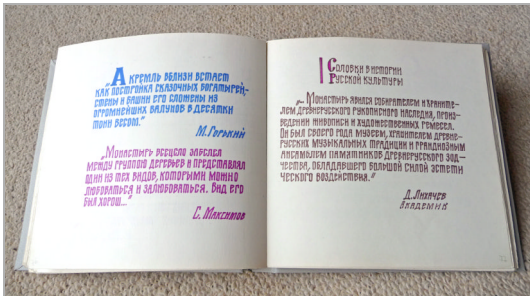 „А кремль вблизи встает
как постройка сказочных богатырей,-
стены и башни его сложены из
огромнейших валунов в десятки
тонн весом."
М. Горький
„Монастырь всецело забелел
между группою деревьев и представлял
один из тех видов, которыми можно
любоваться и залюбоваться. Вид его
был хорош..."
С. Максимов
Соловки в истории
Русской культуры
„... Монастырь явился собирателем и храните-
лем древнерусского рукописного наследия, произ-
ведений живописи и художественных ремесел.
Он был своего рода музеем, хранителем древне-
русских музыкальных традиций и грандиозным
ансамблем памятников древнерусского зод-
чества, обладавшего большой силой эстети
ческого воздействия."
Д. Лихачев
Академик